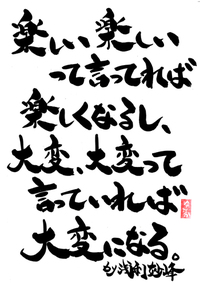 楽しい、楽しい
って言ってれば
楽しくなるし、
大変、大変って
言っていれば
大変になる。